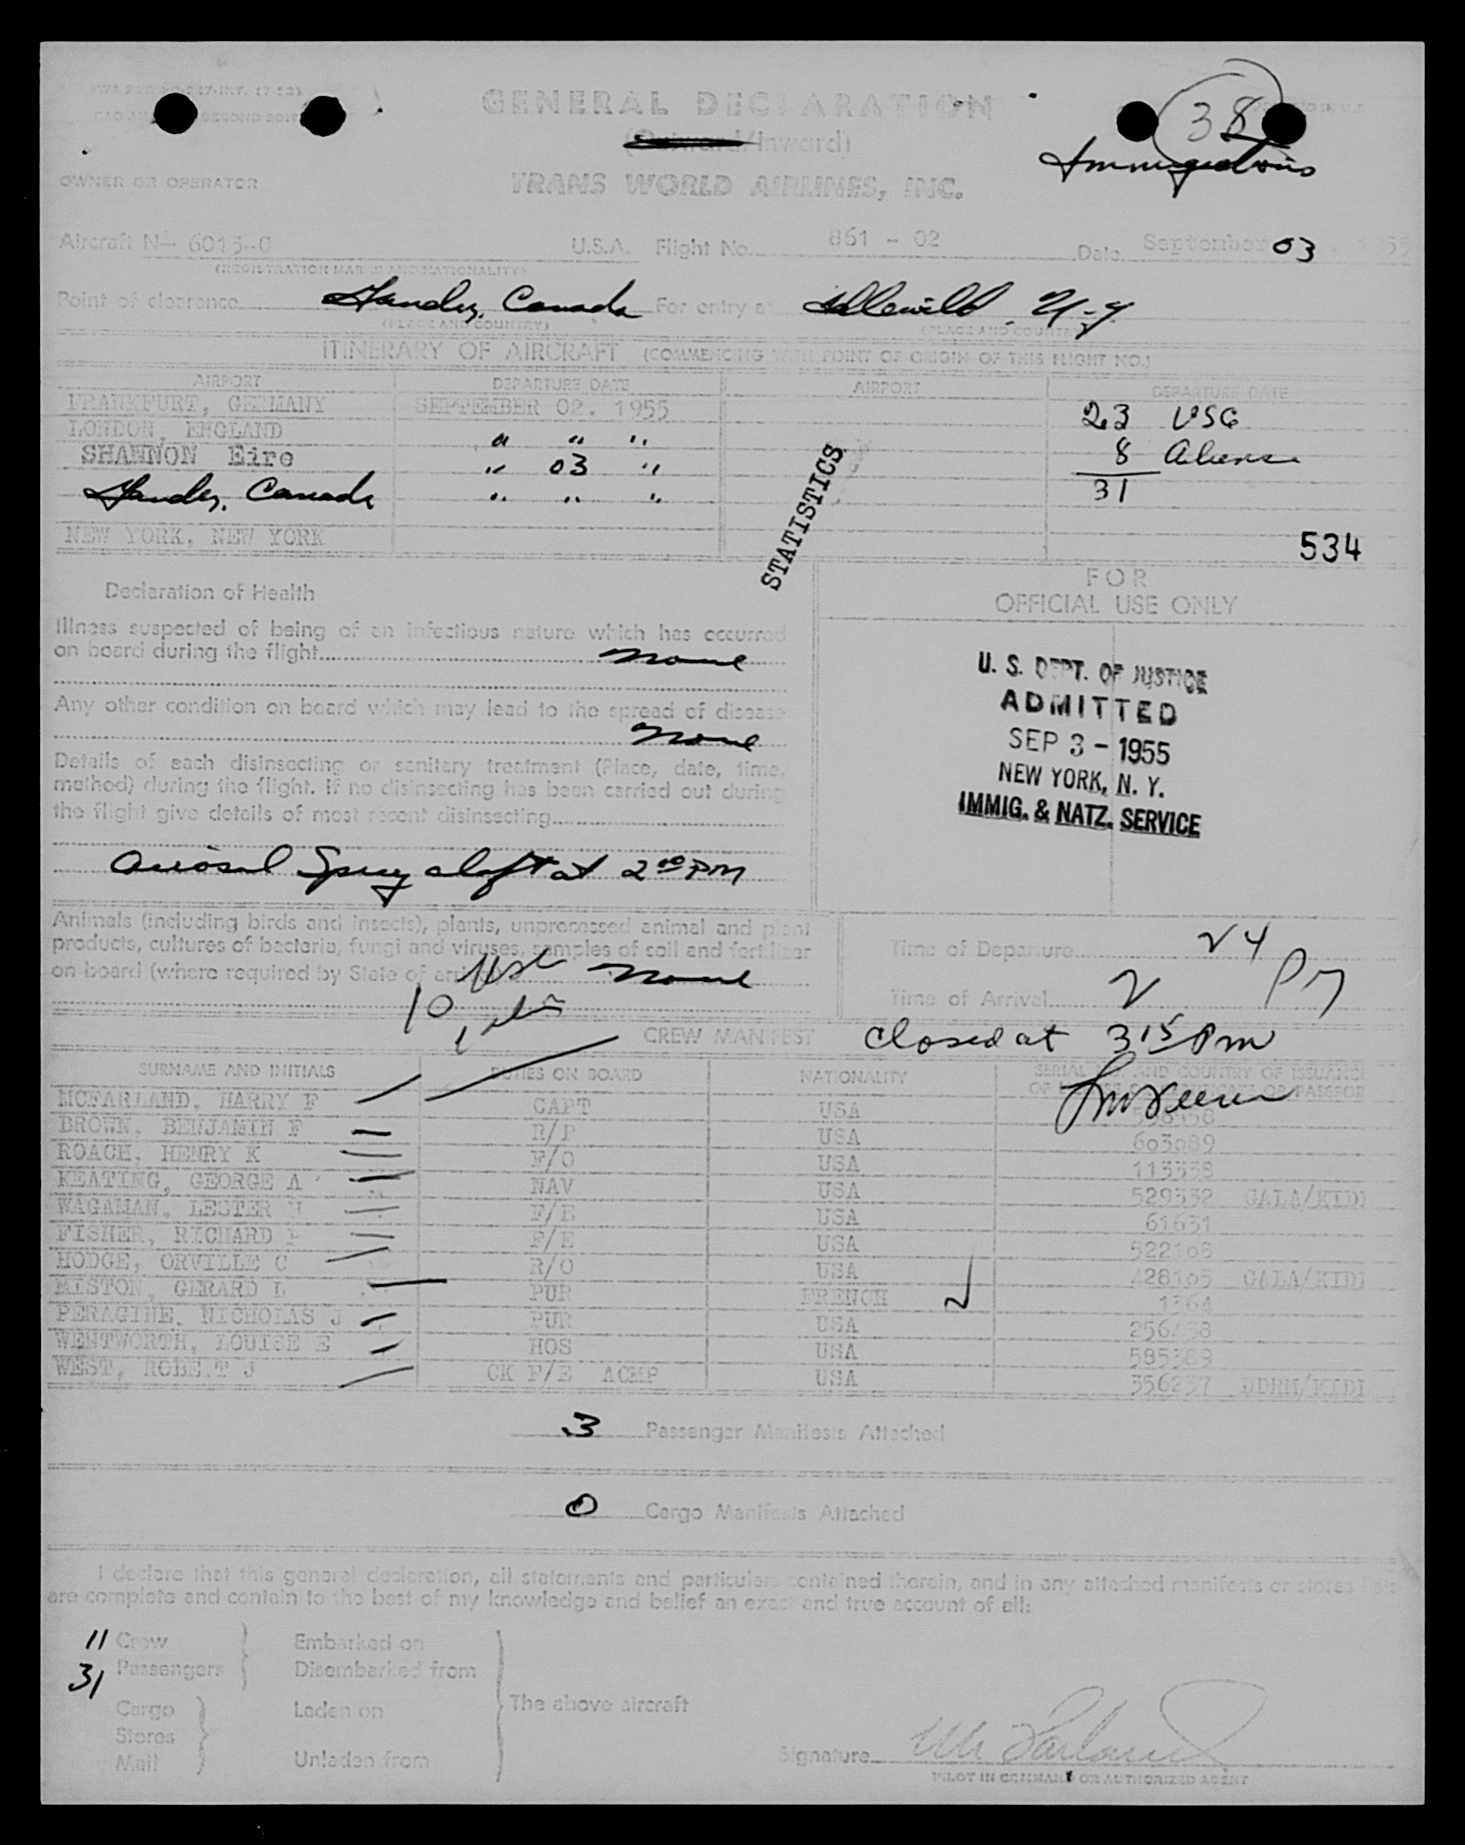 38
GENERAL DECLARATION
(Outward/Inward)
Immigrations
OWNER OR OPERATOR TRANS WORLD AIRLINES, INC.
Aircraft N— 6015-C U.S.A. Flight No. 861 - 02 Date September 03, 55
(REGISTRATION MARKS AND NATIONALITY)
Point of clearance Gander, Canada For entry at Idlewild, N-Y
(PLACE AND COUNTRY) (PLACE AND COUNTRY)
ITINERARY OF AIRCRAFT (COMMENCING WITH POINT OF ORIGIN OF THIS FLIGHT NO.)
AIRPORT DEPARTURE DATE AIRPORT DEPARTURE DATE
FRANKFURT, GERMANY SEPTEMBER 02. 1955 23 USC
LONDON, ENGLAND " " " 8 Aliens
SHANNON Eire " 03 " 31
Gander, Canada " " "
NEW YORK, NEW YORK
STATISTICS
534
Declaration of Health
Illness suspected of being of an infectious nature which has occurred
on board during the flight none
Any other condition on board which may lead to the spread of disease
none
Details of each disinsecting or sanitary treatment (Place, date, time,
method) during the flight. If no disinsecting has been carried out during
the flight give details of most recent disinsecting
Aerosol Spray aloft at 2 00 PM
FOR
OFFICIAL USE ONLY
U. S. DEPT. OF JUSTICE
ADMITTED
SEP 3 - 1955
NEW YORK, N. Y.
IMMIG. & NATZ. SERVICE
Animals (including birds and insects), plants, unprocessed animal and plant
products, cultures of bacteria, fungi and viruses, samples of soil and fertilizer
on board (where required by State of arrival) none
10
Time of Departure 2 24
Time of Arrival 2 PM
closed at 3 15 pm
CREW MANIFEST
SURNAME AND INITIALS DUTIES ON BOARD NATIONALITY
MCFARLAND, HARRY F CAPT USA
BROWN, BENJAMIN F R/P USA 603089
ROACH, HENRY K F/O USA 113338
KEATING, GEORGE A NAV USA 529332 GALA/KIDI
WAGAMAN, LESTER F/E USA 61631
FISHER, RICHARD F/E USA 522108
HODGE, ORVILLE C R/O USA 428105 GALA/KIDI
MISTON, GERARD L PUR FRENCH 1364
PERAGINE, NICHOLAS J PUR USA 256
WENTWORTH, LOUISE E HOS USA 585389
WEST, ROBERT J CK F/E ACMP USA 356237 DDHM/KIDI
3 Passenger Manifests Attached
0 Cargo Manifests Attached
I declare that this general declaration, all statements and particulars contained therein, and in any attached manifests or stores lists
are complete and contain to the best of my knowledge and belief an exact and true account of all:
11 Crew Embarked on
31 Passengers Disembarked from
Cargo Laden on The above aircraft
Stores
Mail Unladen from
Signature McFarland
PILOT IN COMMAND OR AUTHORIZED AGENT